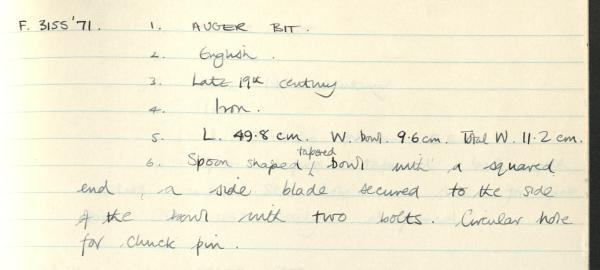 F. 3155'71. 1. AUGER BIT.
2. English.
3. Late 19th century
4. Iron.
5. L. 49.8 cm. W. bowl. 9.6 cm. Total W. 11.2 cm.
6. Spoon shaped, tapered bowl with a squared
end, a side blade secured to the side
of the bowl with two bolts. Circular hole
for chuck pin.